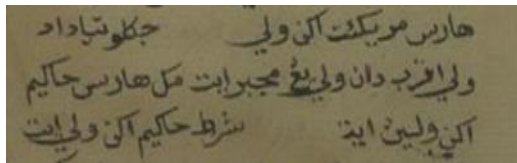 هارس مريكئت اكن ولي جكلو تياد اد
ولي اقرب دان ولي يڠ مجبر ايت مك هارس حاكيم
اكن ولين اية شرط حاكيم اكن ولي ايت